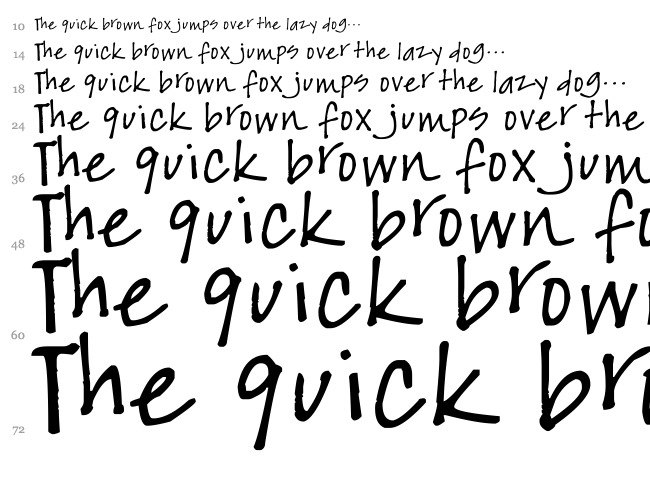 10 The quick brown fox jumps over the lazy dog...
14 The quick brown fox jumps over the lazy dog...
18 The quick brown fox jumps over the lazy dog...
24 The quick brown fox jumps over the
36 The quick brown fox jum
48 The quick brown fo
60 The quick brown
72 The quick bro